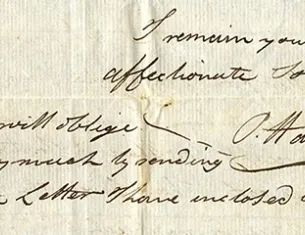 I remain you
affectionate So
will oblige P Ha
much by sending
Letter I have inclosed